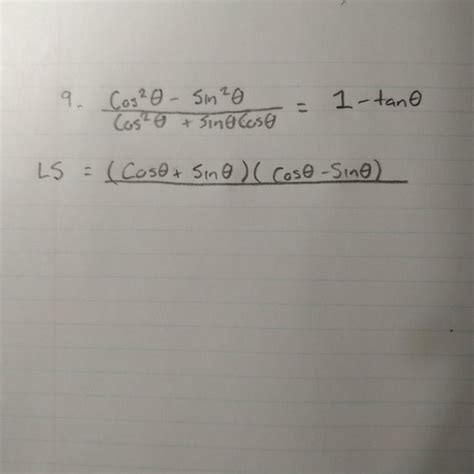 9. Cos²θ - Sin²θ / Cos²θ + SinθCosθ = 1 - tanθ
LS = (Cosθ + Sinθ)(Cosθ - Sinθ)